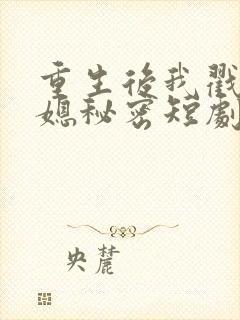 重生後我戳
媳秘密短劇
央麓